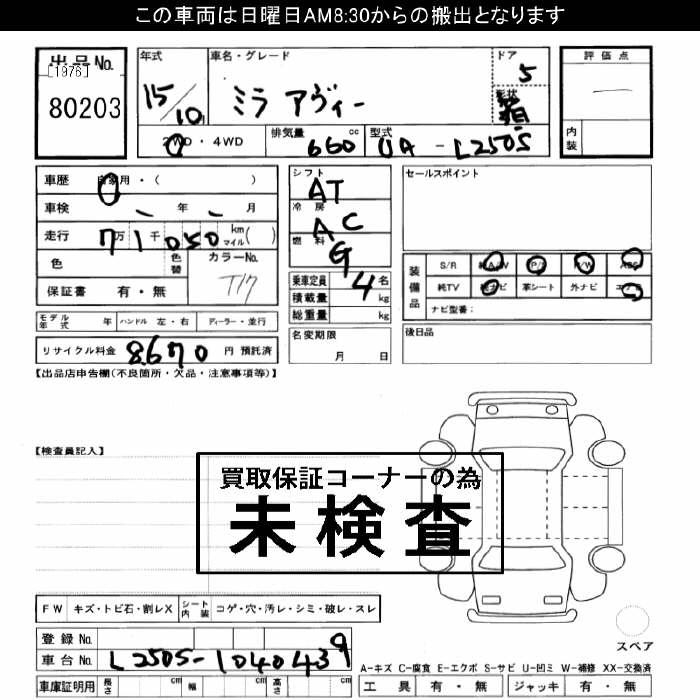 この車両は日曜日AM8:30からの搬出となります
出品No.
[1976]
80203
年式
15/10
車名・グレード
ミラ アヴィー
ドア
5
形状
箱
2WD・4WD
排気量
660 cc
型式
UA - L250S
評価点
内装
車歴 自家用・( )
車検 年 月
走行 7万1千050 km マイル( )
色
色替
カラーNo.
T17
保証書 有・無
シフト
AT
冷房
AC
燃料
G
乗車定員 4名
積載量 kg
総重量 kg
セールスポイント
装備品
S/R 純A/W P/S P/W ABS
純TV 純ナビ 革シート 外ナビ エアB
ナビ型番:
モデル年式 年 ハンドル 左・右 ディーラー・並行
名変期限
月 日
後日品
リサイクル料金 8670 円 預託済
【出品店申告欄(不良箇所・欠品・注意事項等)】
【検査員記入】
買取保証コーナーの為
未検査
FW キズ・トビ石・割レX シート内装 コゲ・穴・汚レ・シミ・破レ・スレ
スペア
登録No.
車台No. L250S-1040439
A-キズ C-腐食 E-エクボ S-サビ U-凹ミ W-補修 XX-交換済
車庫証明用 長さ cm 幅 cm 高さ cm
工具 有・無 ジャッキ 有・無